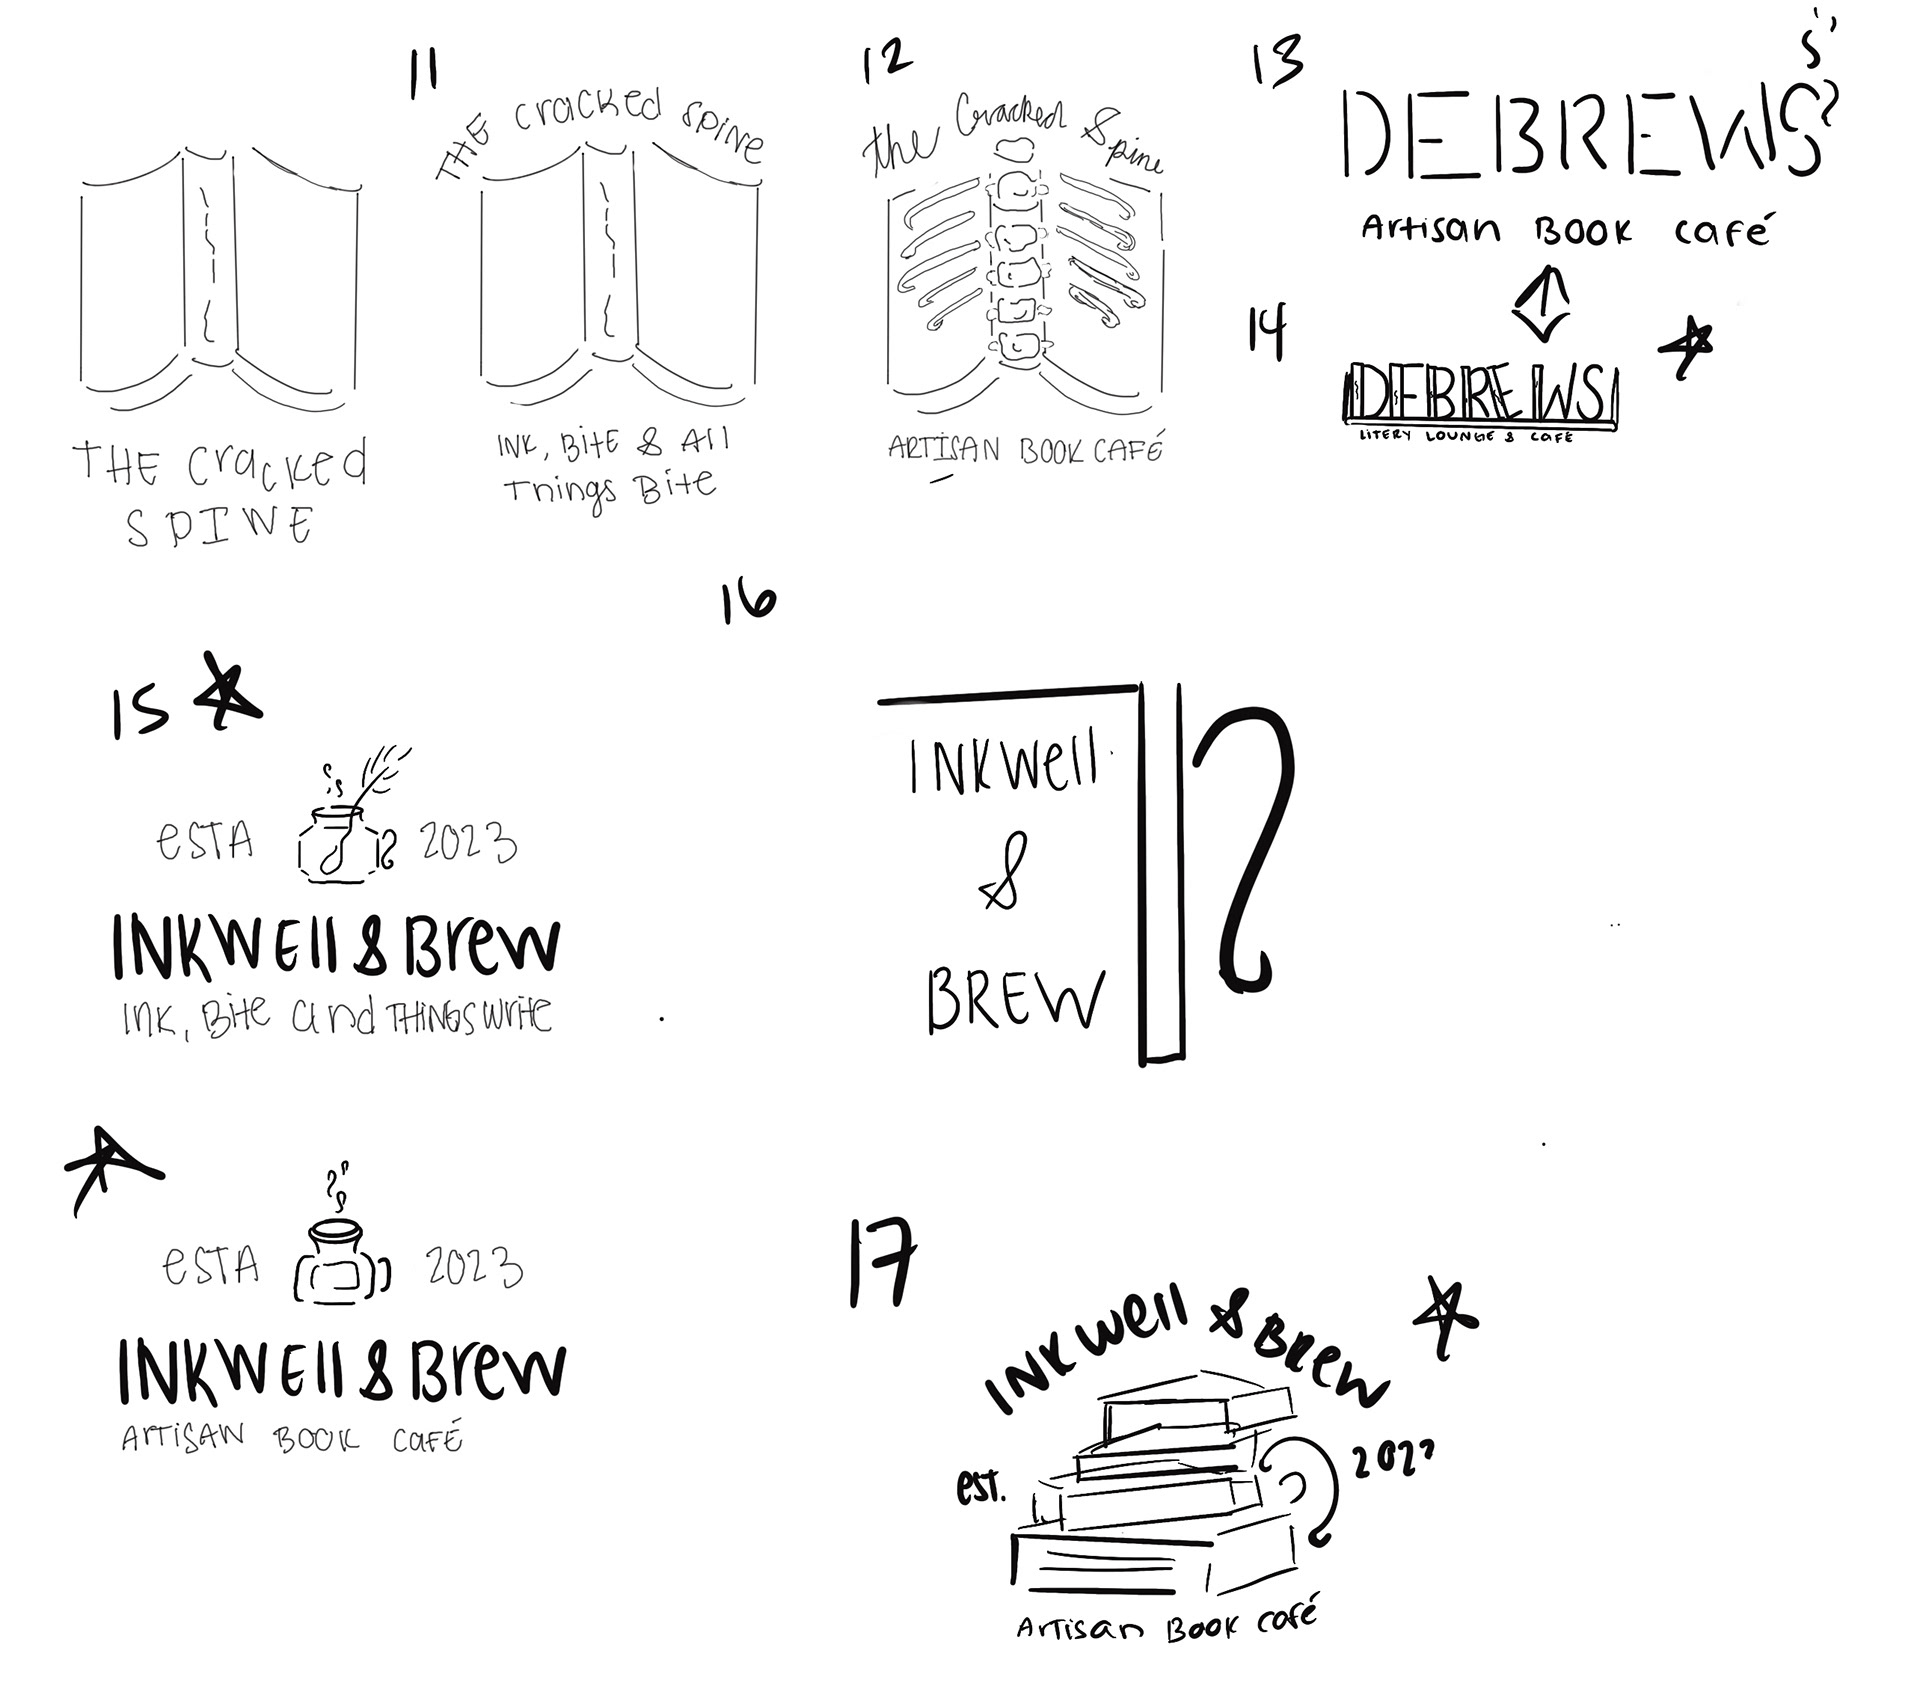 11
THE cracked spine
12
the Cracked Spine
13
DEBREWS
Artisan BOOK café
14
DEBREWS
LITERY LOUNGE & CAFÉ
THE cracked
SPINE
INK, BitE & All
Things Bite
ARTISAN BOOK CAFÉ
15
16
eSTA 2023
INKWEll & Brew
Ink, Bite and THINGS WRITE
INKWell
&
BREW
eSTA 2023
INKWEll & Brew
ARTiSAN BOOK CaFÉ
17
INKwell & BReW
est. 2022
ArTisan BOOK café